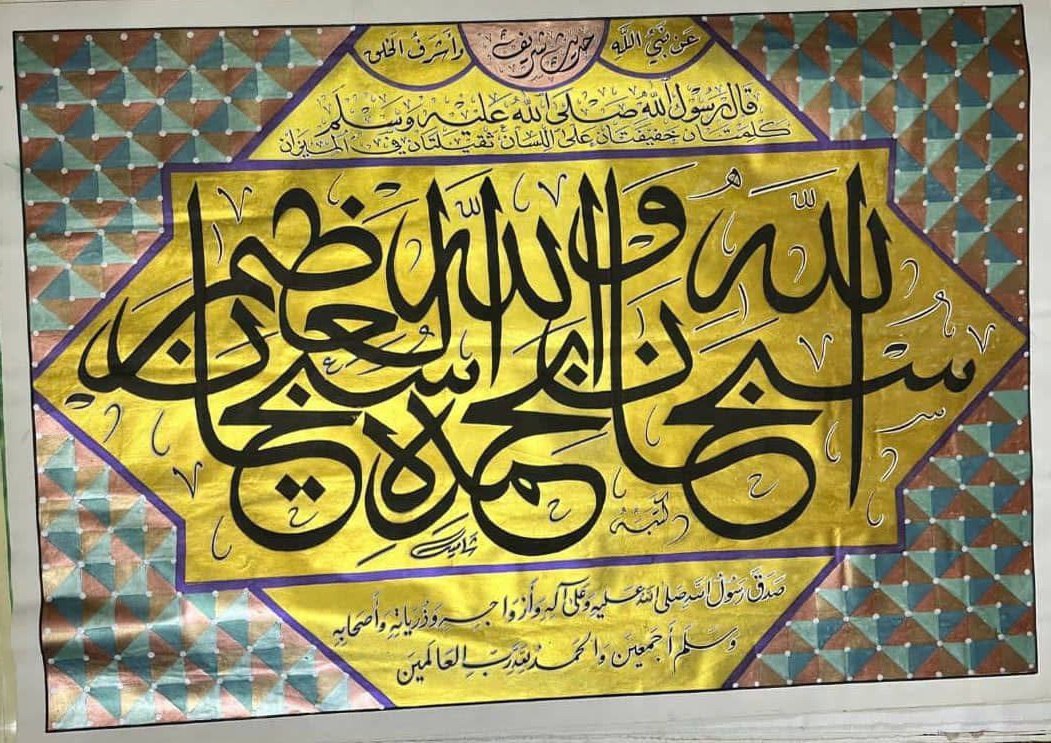 عن نبي الله
حديث شريف
وأشرف الخلق
قَالَ رَسُولُ اللّٰه صَلى اللّٰهُ عَليْهِ وَسَلم
كلِمتَان خفيفتَان عَلى اللسَان ثقيلتَان في الميزَان
سبحان الله وبحمده سبحان الله العظيم
كتبه
صَدَقَ رَسُولُ اللّٰه صَلى اللّٰه عَليهِ وَعَلى آلهِ وَأزْوَاجهِ وَذُرّيَاتهِ وَأصْحَابهِ
وَسَلمَ أجمَعينَ وَالحَمدُ للهِ رَبّ العَالمينَ